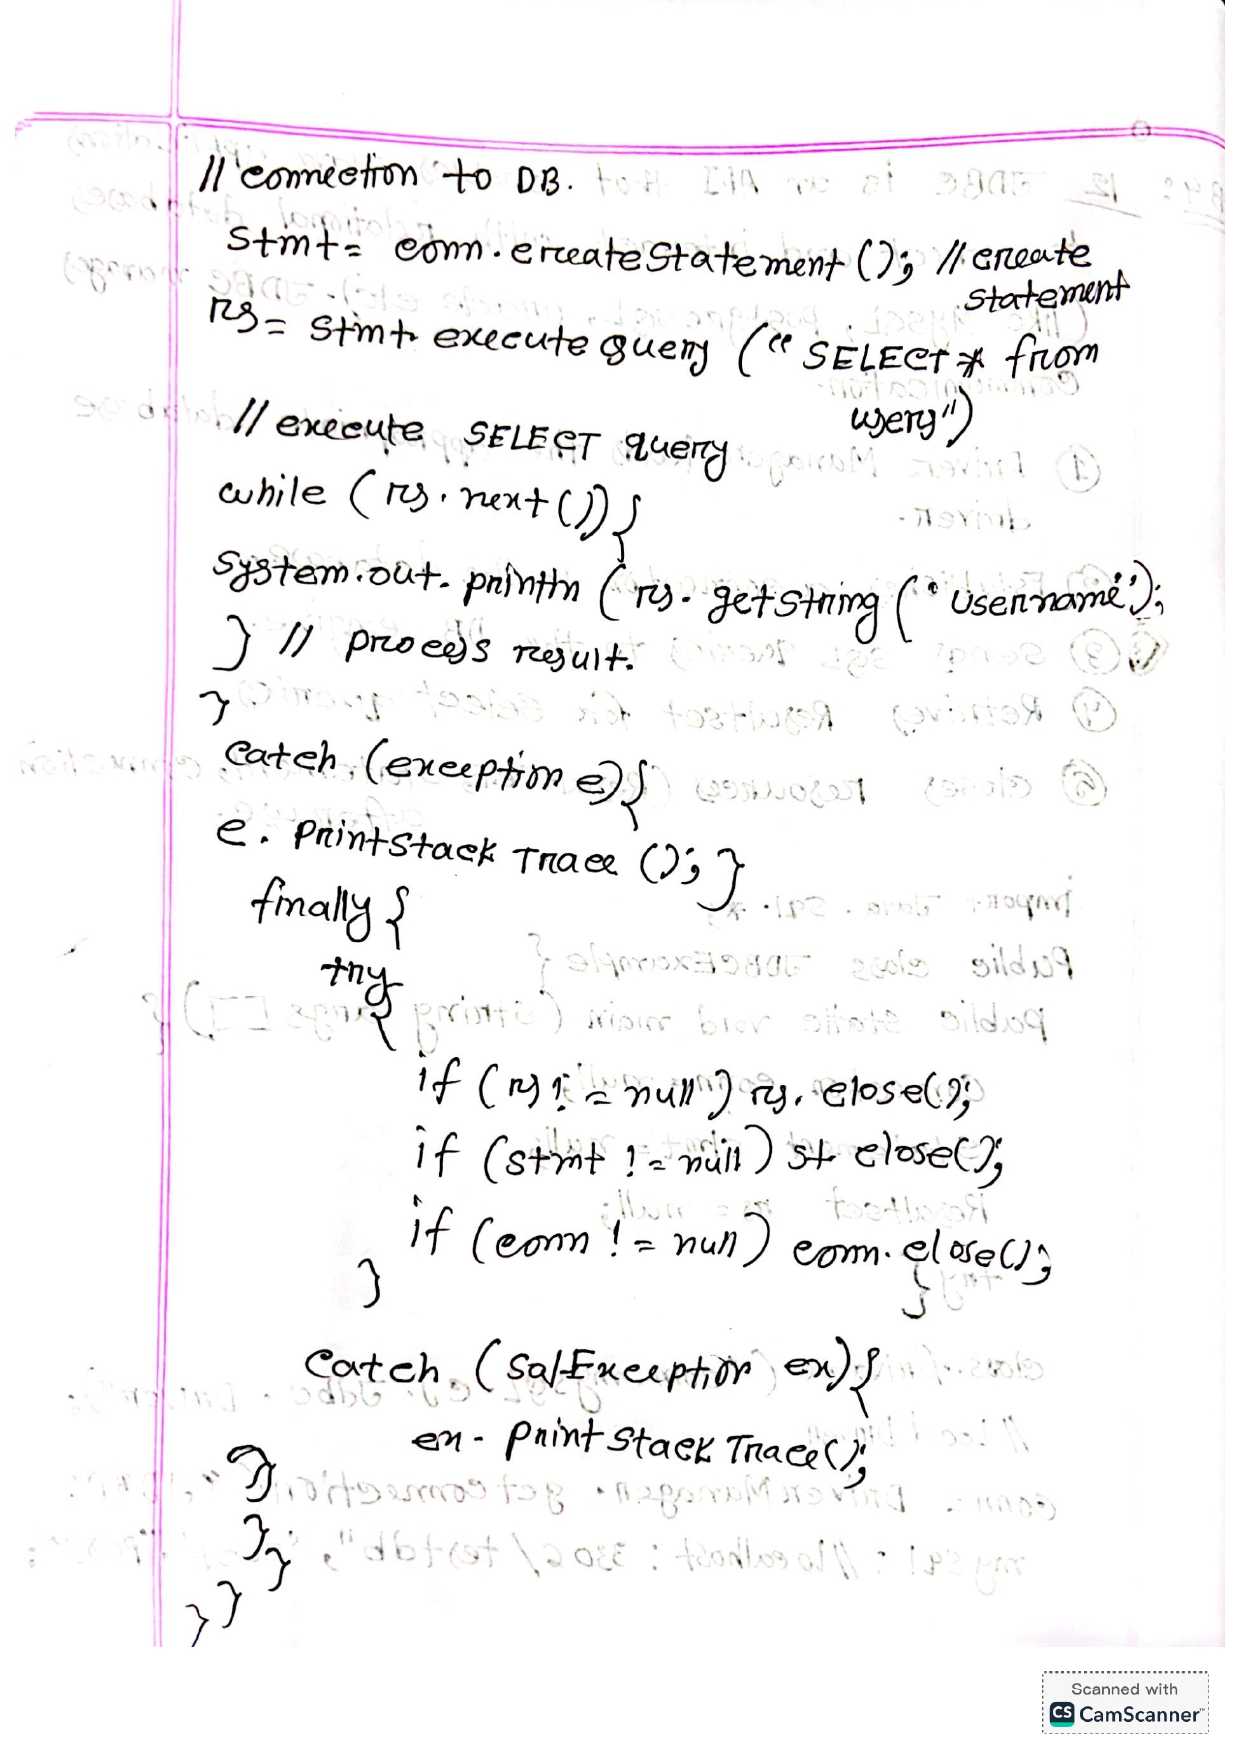 // connection to DB.
stmt = conn.createStatement(); // create
statement
rs = stmt. execute query ("SELECT * from
users")
// execute SELECT query
while (rs.next()){
System.out.println (rs.getString("Username");
} // process result.
}
catch (exception e){
e. PrintStack Trace ();}
finally {
try
{
if (rs != null) rs. close();
if (stmt != null) st close();
if (conn != null) conn. close();
}
}
catch (SqlException ex){
ex. PrintStackTrace();
}
}
}
}
}
Scanned with
CS CamScanner